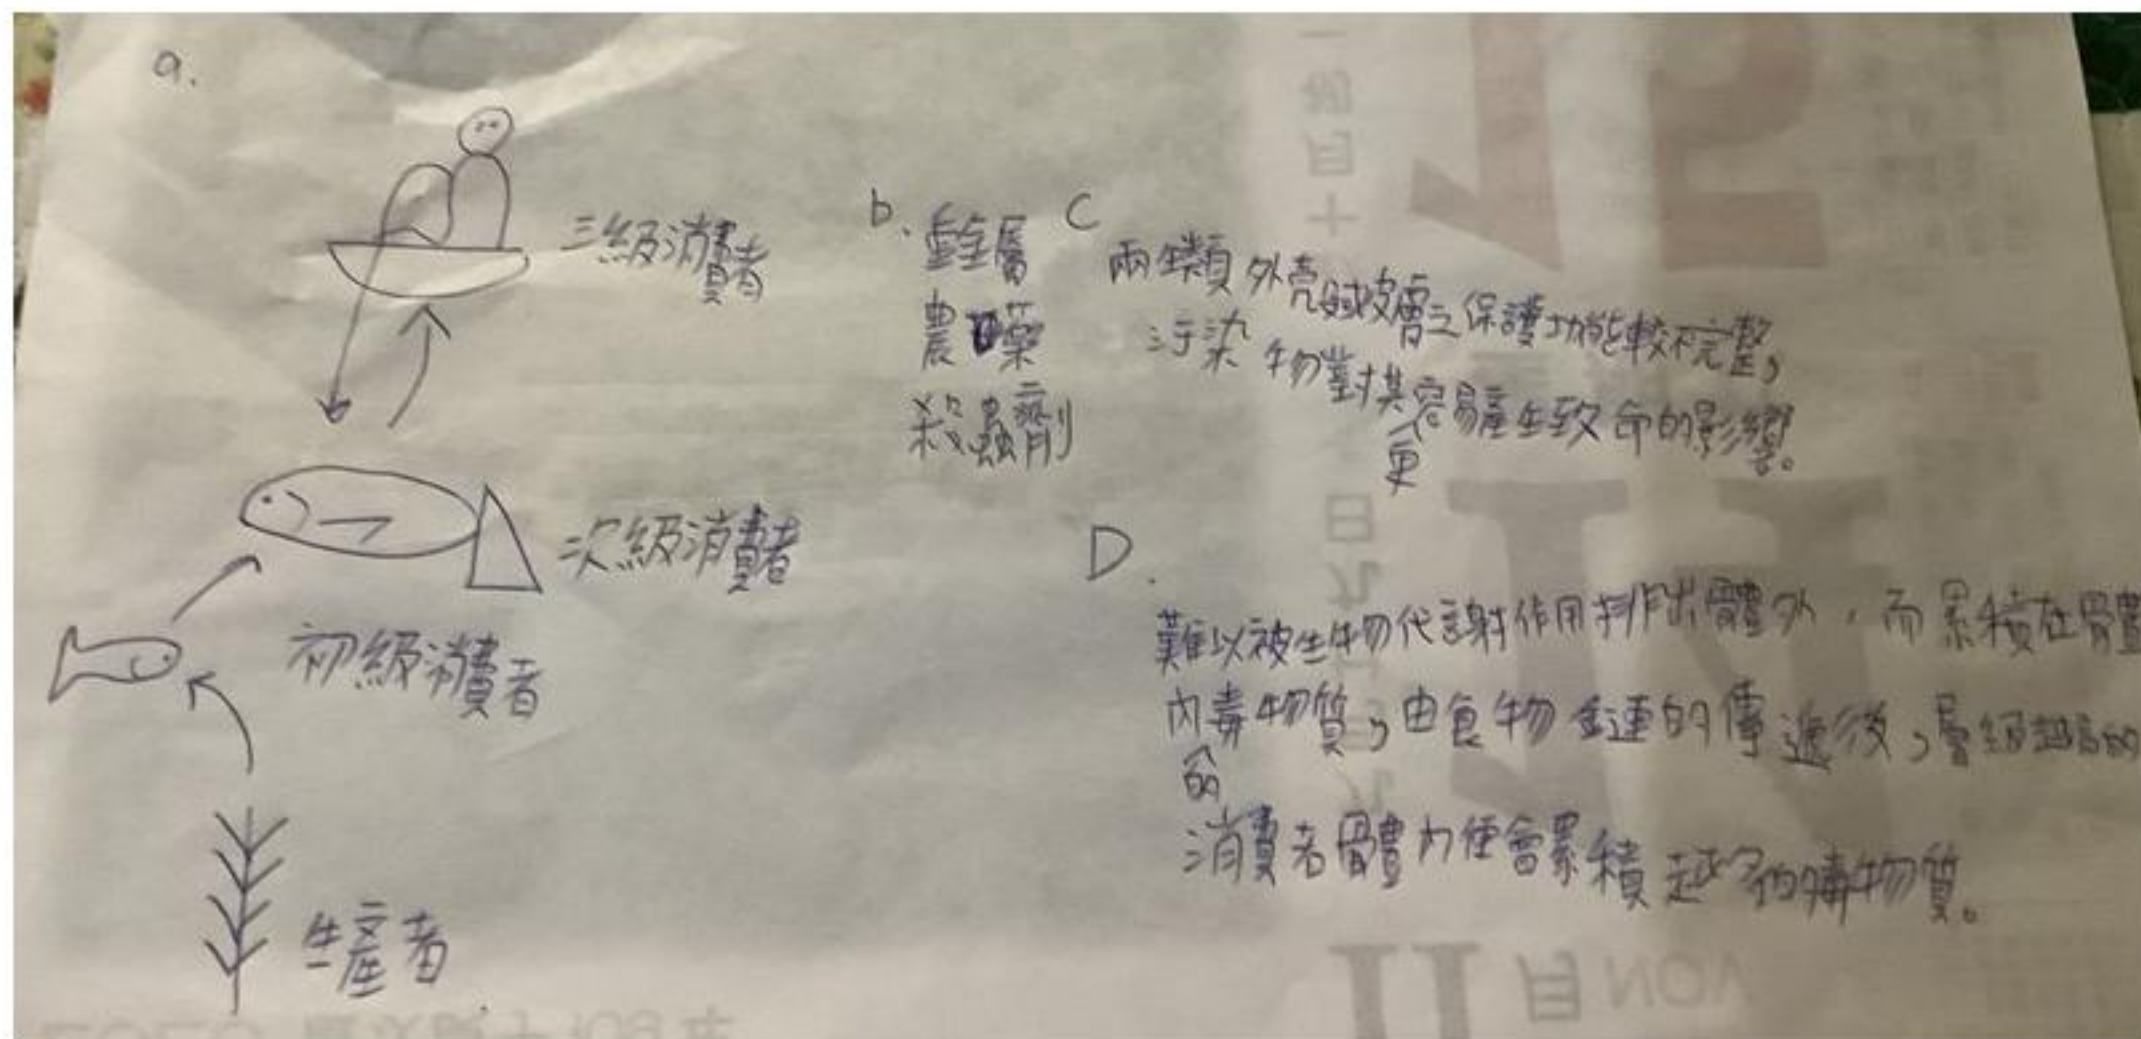 a.
三級消費者
次級消費者
初級消費者
生產者
b.
重金屬
農藥
殺蟲劑
C
兩生類外壳或皮膚之保護功能較不完整,
污染物對其更容易產生致命的影響。
D.
難以被生物代謝作用排出體外,而累積在體
內的毒物質,由食物鏈的傳遞後,層級越高的
消費者體內便會累積越多的毒物質。
11月 NOV